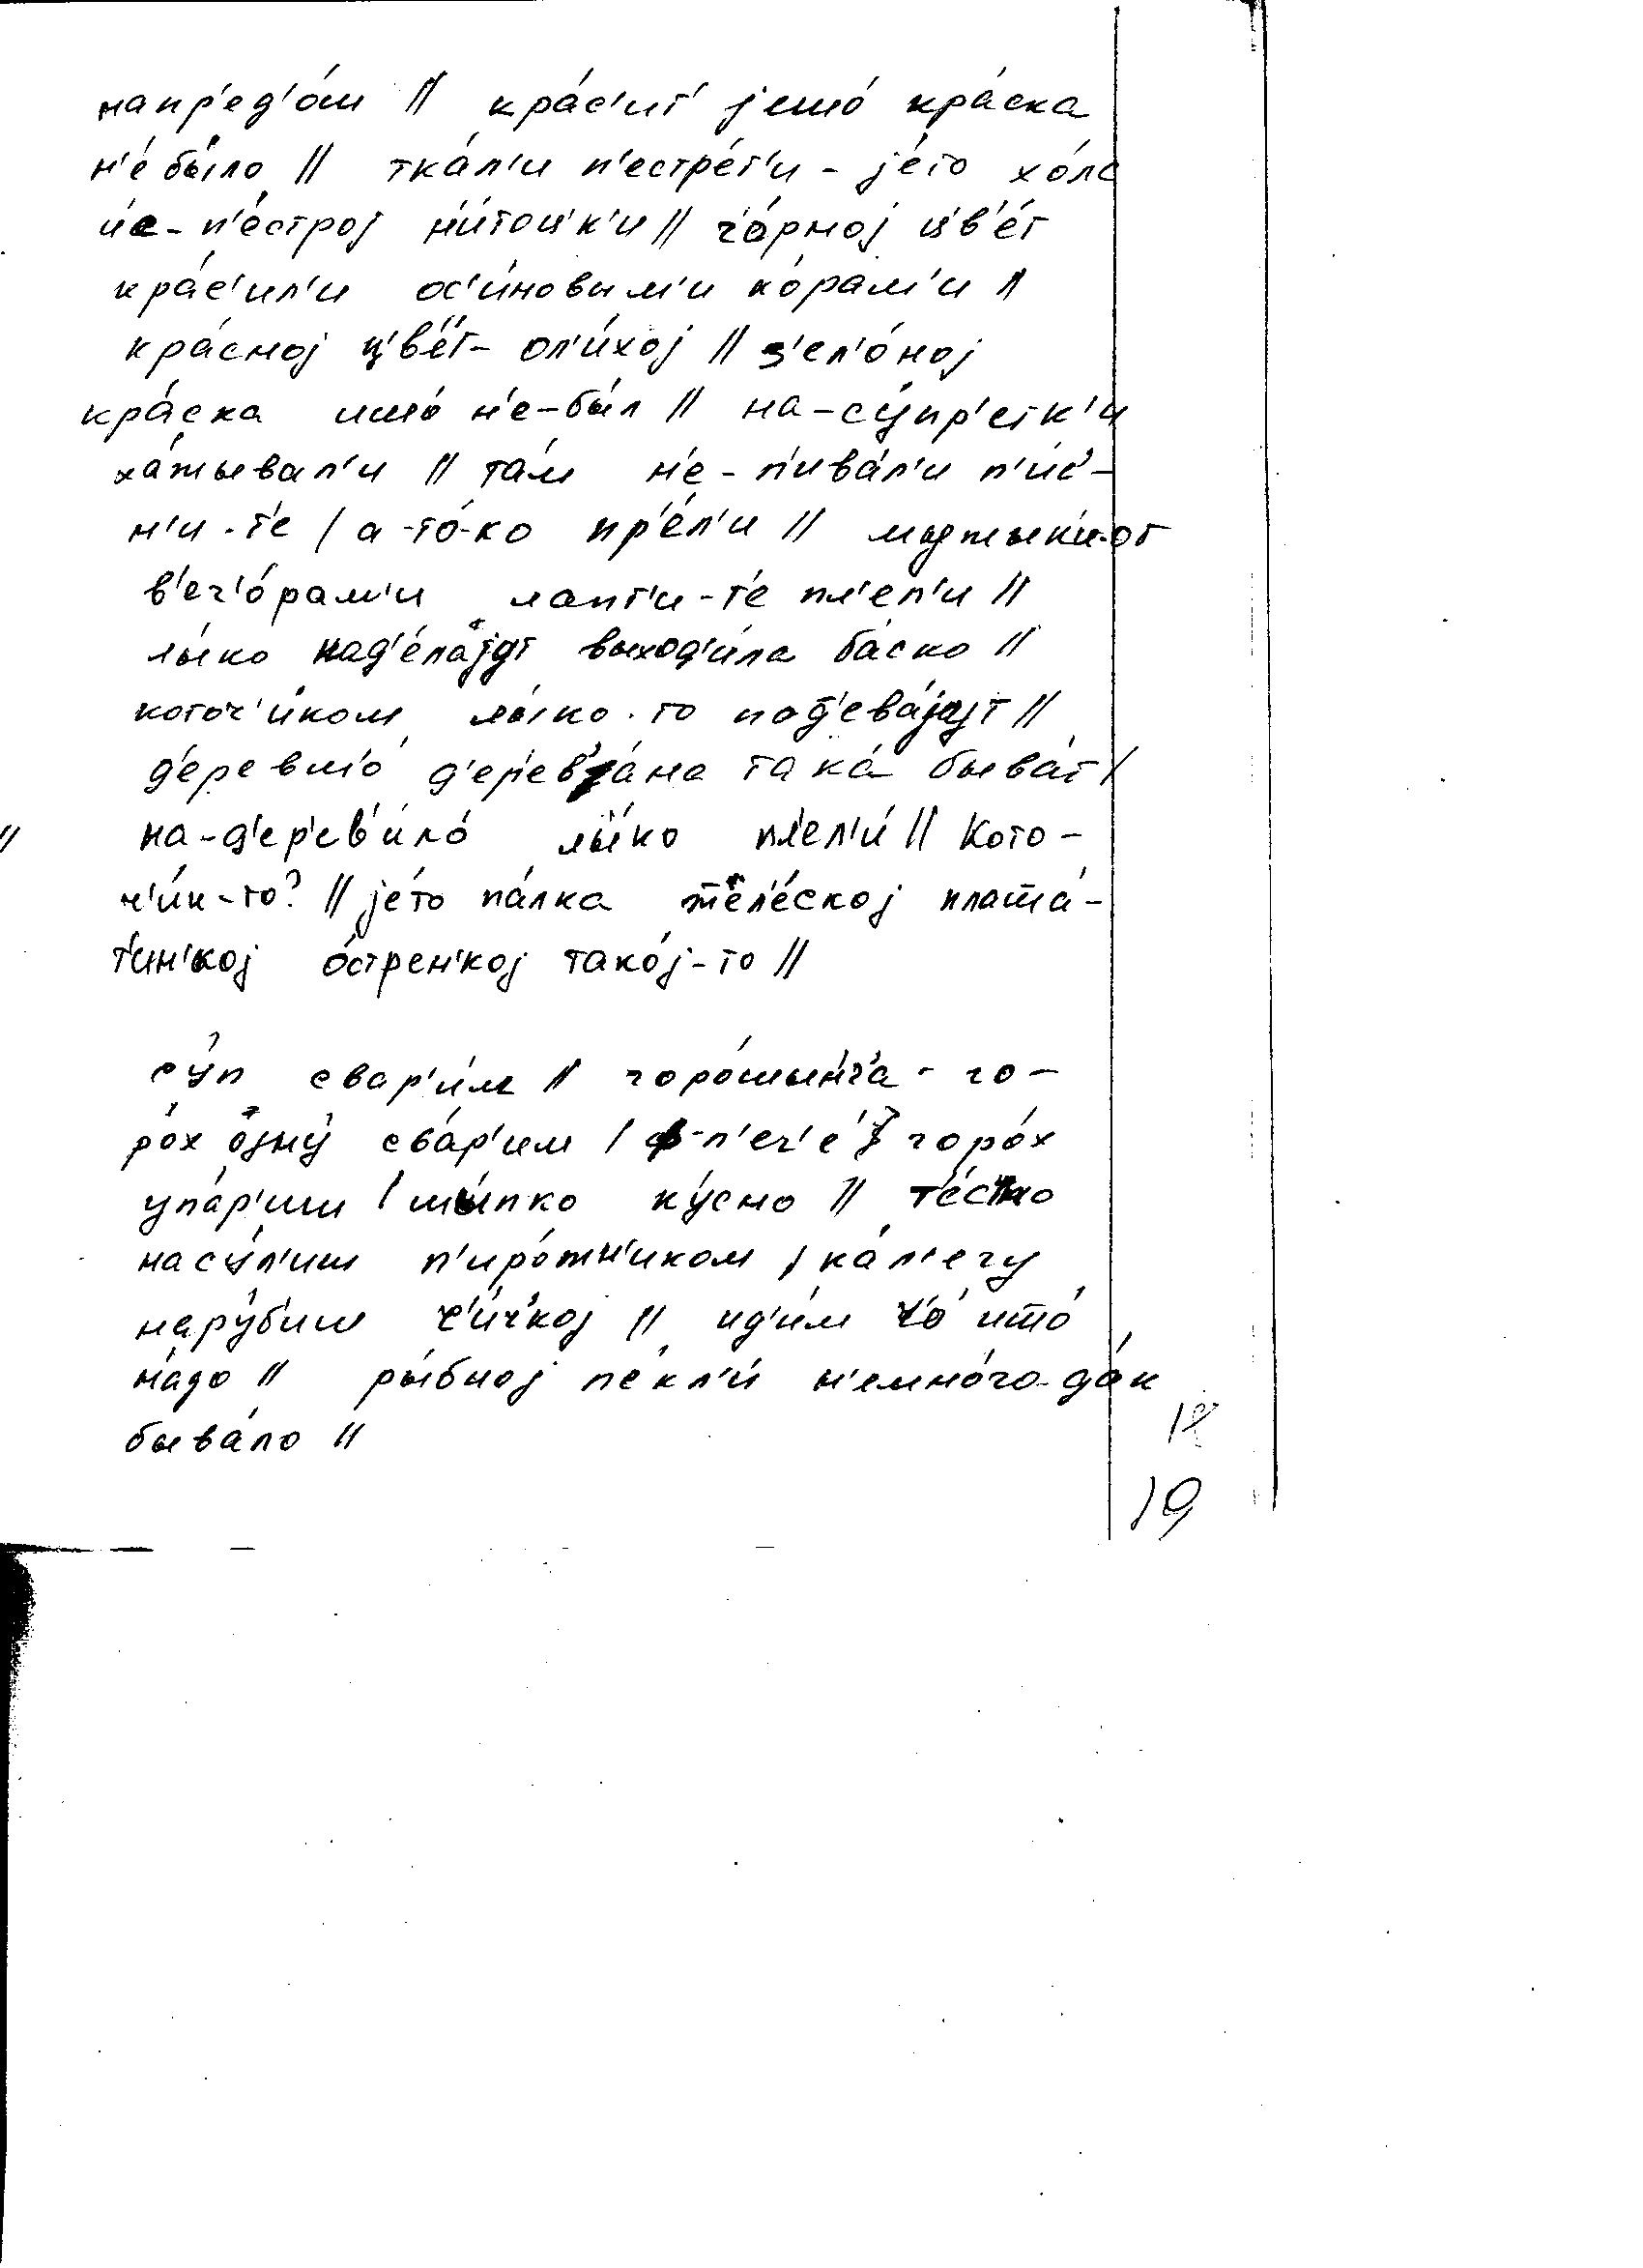 напр'ед'о́ш // кра́с'ит' јешо́ кра́ска
н'е́ было // тка́л'и п'естр'е́т'и - је́то холс
ис-п'о́строј н'и́точк'и // чо́рној цв'е́т
кра́с'ил'и ос'и́новым'и ко́рам'и //
кра́сној ц'в'е́т - ол'и́хој // з'ел'о́ној
кра́ска ишо́ н'е-бы́л // на-су́пр'етк'и
ха́жывал'и // та́м н'е-п'ива́л'и п'и́с'-
н'и-т'е / а-то́-ко пр'е́л'и // мужык'и́-от
в'еч'о́рам'и лапт'и-т'е пл'ел'и //
лы́ко над'е́лајут выход'и́ла ба́ско //
коточ'и́ком лы́ко-то под'ева́јут //
д'ер'евл'о́ д'ер'ев'а́на така́ быва́т /
на-д'ер'ев'и́ло́ лы́ко пл'ел'и́ // Кото-
ч'и́к-то? // је́то па́лка жел'е́ској плаша́-
т'ин'кој о́стрен'кој тако́ј-то //
су́п свар'и́м // горо́шын'а - го-
ро́х одну́ сва́р'им / ф-п'еч'е́ горо́х
упа́р'иш / шы́пко ку́сно // т'е́сто
насу́л'иш п'иро́жн'иком / ка́л'егу
нару́б'иш с'и́ч'кој // ид'и́м чо́ ишо́
на́до // ры́бној п'екл'и́ н'емно́го-да́к
быва́ло //
19